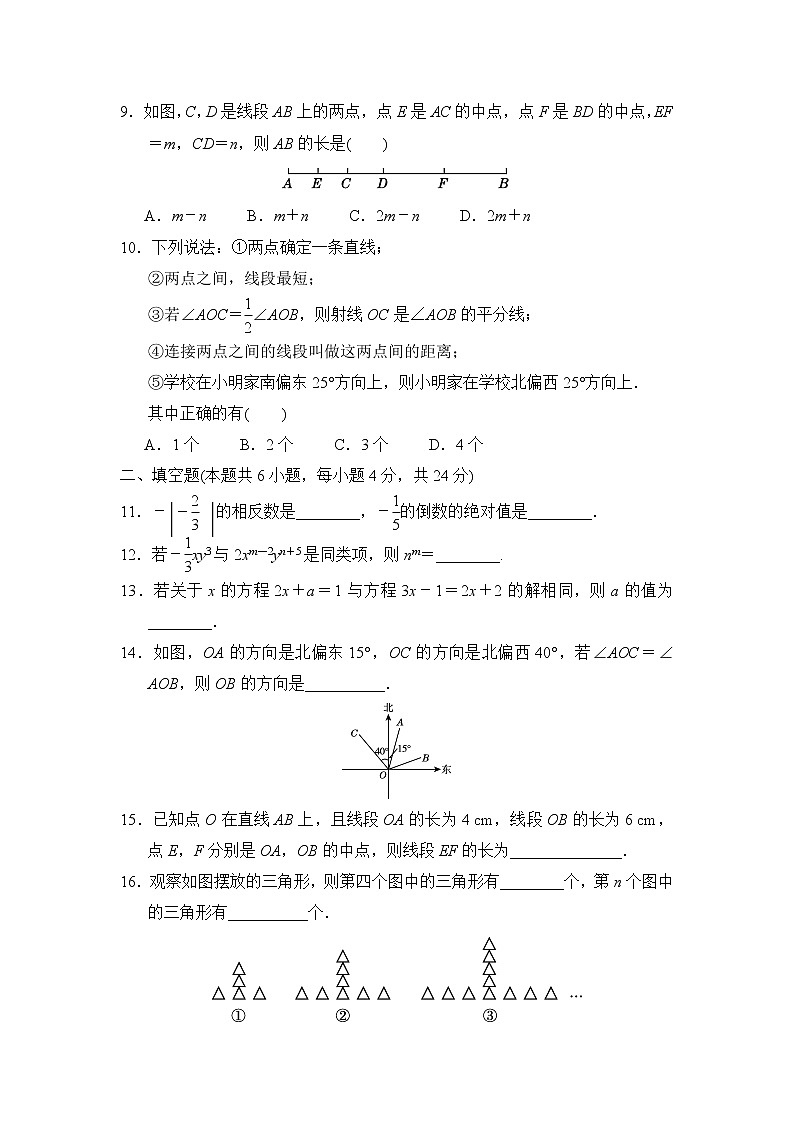 9．如图，C，D是线段AB上的两点，点E是AC的中点，点F是BD的中点，EF
＝m，CD＝n，则AB的长是(　　)
A E C D F B
A．m－n　　B．m＋n　　C．2m－n　　D．2m＋n
10．下列说法：①两点确定一条直线；
②两点之间，线段最短；
③若∠AOC＝1/2∠AOB，则射线OC是∠AOB的平分线；
④连接两点之间的线段叫做这两点间的距离；
⑤学校在小明家南偏东25°方向上，则小明家在学校北偏西25°方向上．
其中正确的有(　　)
A．1个　　B．2个　　C．3个　　D．4个
二、填空题(本题共6小题，每小题4分，共24分)
11．－|－2/3|的相反数是________，－1/5的倒数的绝对值是________．
12．若－1/3xy³与2xᵐ⁻²yⁿ⁺⁵是同类项，则nᵐ＝________.
13．若关于x的方程2x＋a＝1与方程3x－1＝2x＋2的解相同，则a的值为
________．
14．如图，OA的方向是北偏东15°，OC的方向是北偏西40°，若∠AOC＝∠
AOB，则OB的方向是__________．
北
A
C
40° 15°
B
O
东
15．已知点O在直线AB上，且线段OA的长为4 cm，线段OB的长为6 cm，
点E，F分别是OA，OB的中点，则线段EF的长为______________．
16．观察如图摆放的三角形，则第四个图中的三角形有________个，第n个图中
的三角形有__________个．
…
① ② ③